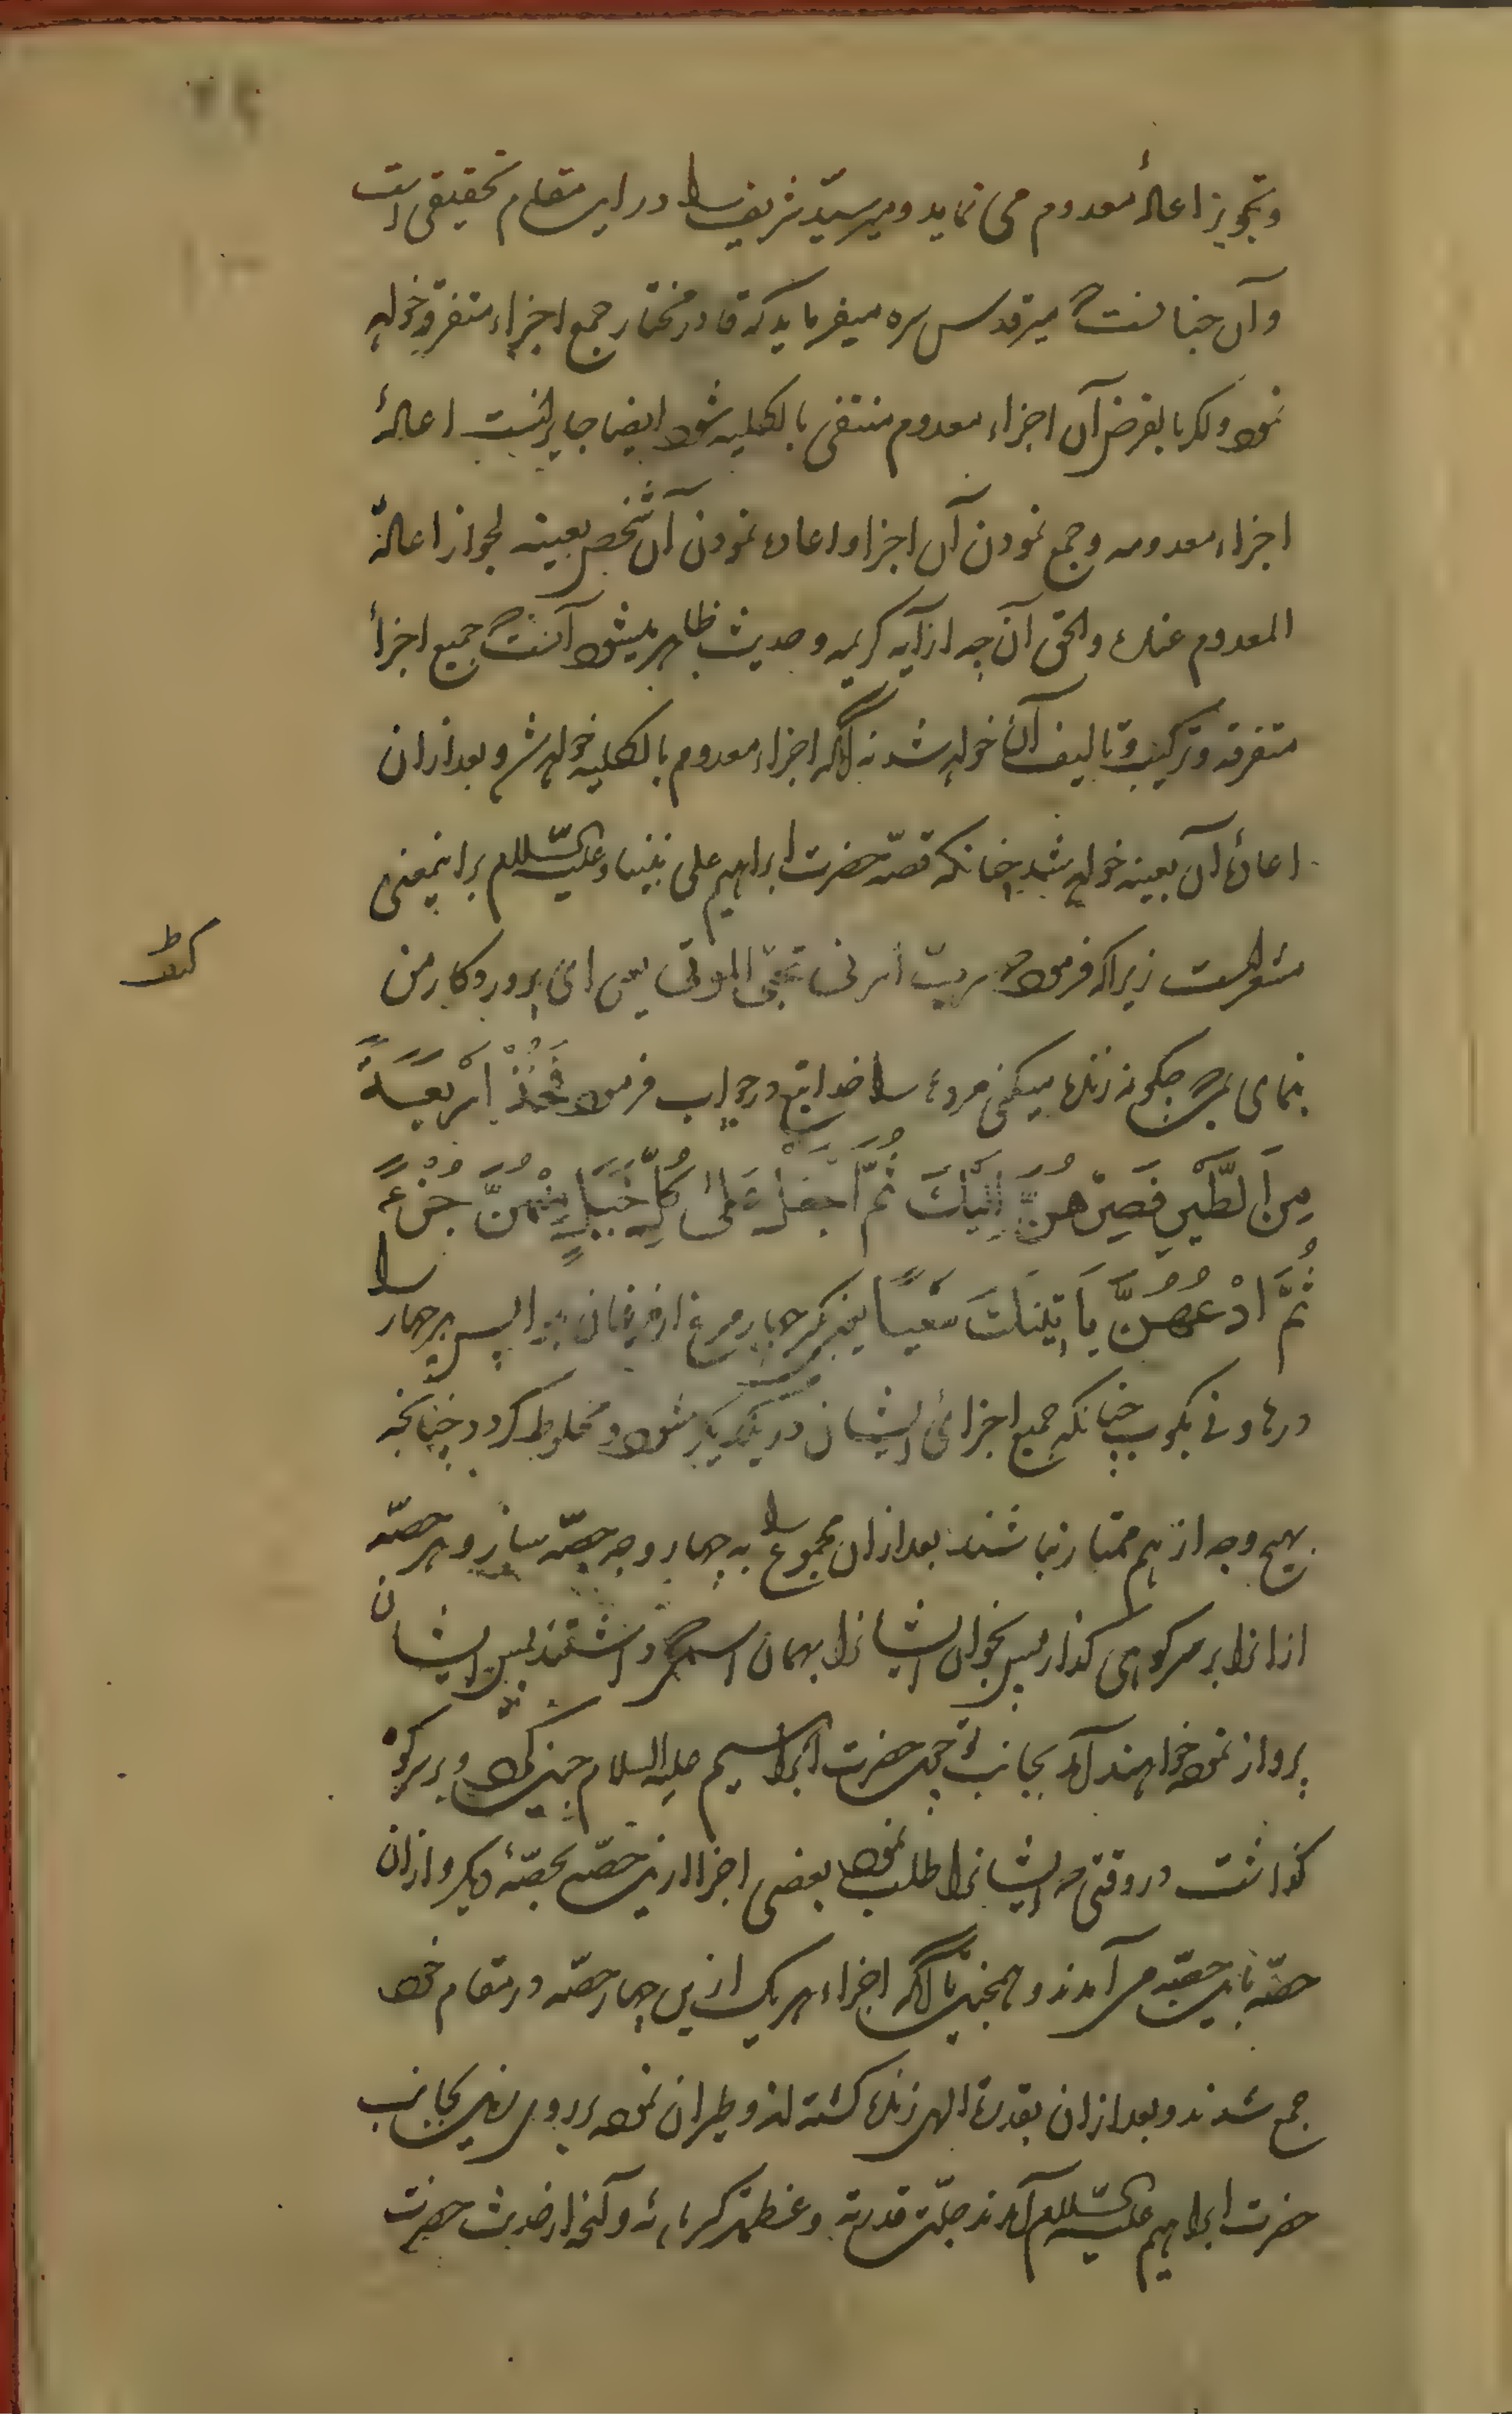 وتجویز اعادهٔ معدوم می نماید و میر سیّد شریف را در این مقام تحقیقی است
وآن چنانست که میر قدس سره میفرماید که قادر مختار جمع اجزاء متفرقه خواهد
نمود و اگر بالفرض آن اجزاء معدوم منتفی بالکلیه شود ایضا جایز است اعادهٔ
اجزاء معدومه وجمع نمودن آن اجزا و اعاده نمودن آن شخص بعینه لجواز اعادة
المعدوم عنده والحق آن چه از آیه کریمه و حدیث ظاهر میشود آنست که جمیع اجزأ
متفرقه وترکیب وتالیف آن خواهد شد نه آنکه اجزاء معدوم بالکلیه خواهد شد و بعد ازان
اعادهٔ آن بعینه خواهد شد چنانکه قصّه حضرت ابراهیم علی نبینا وعلیه السّلام براینمعنی
مشعر است زیرا که فرموده ربّ ارنی کیف تحیی الموتی یعنی ای پروردکار من
بنمای بمن که چکونه زنده میکنی مرده را خدایتع در جواب فرمود فَخُذْ اَرْبَعَةً
مِنَ الطَّیْرِ فَصِرْهُنَّ اِلَیْكَ ثُمَّ اجْعَلْ عَلیٰ كُلِّ جَبَلٍ مِنْهُنَّ جُزْءًا
ثُمَّ ادْعُهُنَّ یَأتِیْنَكَ سَعْیًا یعنی بکیر چهار مرغ از مرغان پس هر چهار را
در هاونی بکوب چنانکه جمیع اجزائ ایشان در یکدیکر شود و مخلوط کردد چنانچه
بهیچ وجه از هم ممتاز نباشند بعد ازان مجموع را به چهار وجه حصّه ساز و هر حصّه
ازانرا بر سر کوهی کذار پس بخوان ایشانرا بهمان اسمی که داشتند پس ایشان
پرواز نموده خواهند آمد بجانب تو چون حضرت ابراهیم علیه السلام چنین کرد و بر سر کوه
کذاشت در وقتی که ایشانرا طلب نمود بعضی اجزا ازین حصّه بحصّهٔ دیکر و ازان
حصّه باین حصّه می آمدند و همچنین تا آنکه اجزاء هریک ازین چهار حصّه در مقام خود
جمع شدند و بعد ازان بقدرت الهی زنده کشته اند و طیران نموده بر روی زمین بجانب
حضرت ابراهیم علیه السّلام آمدند جلّت قدرته وعظمت کبریائه و آنچه از حدیث حضرت